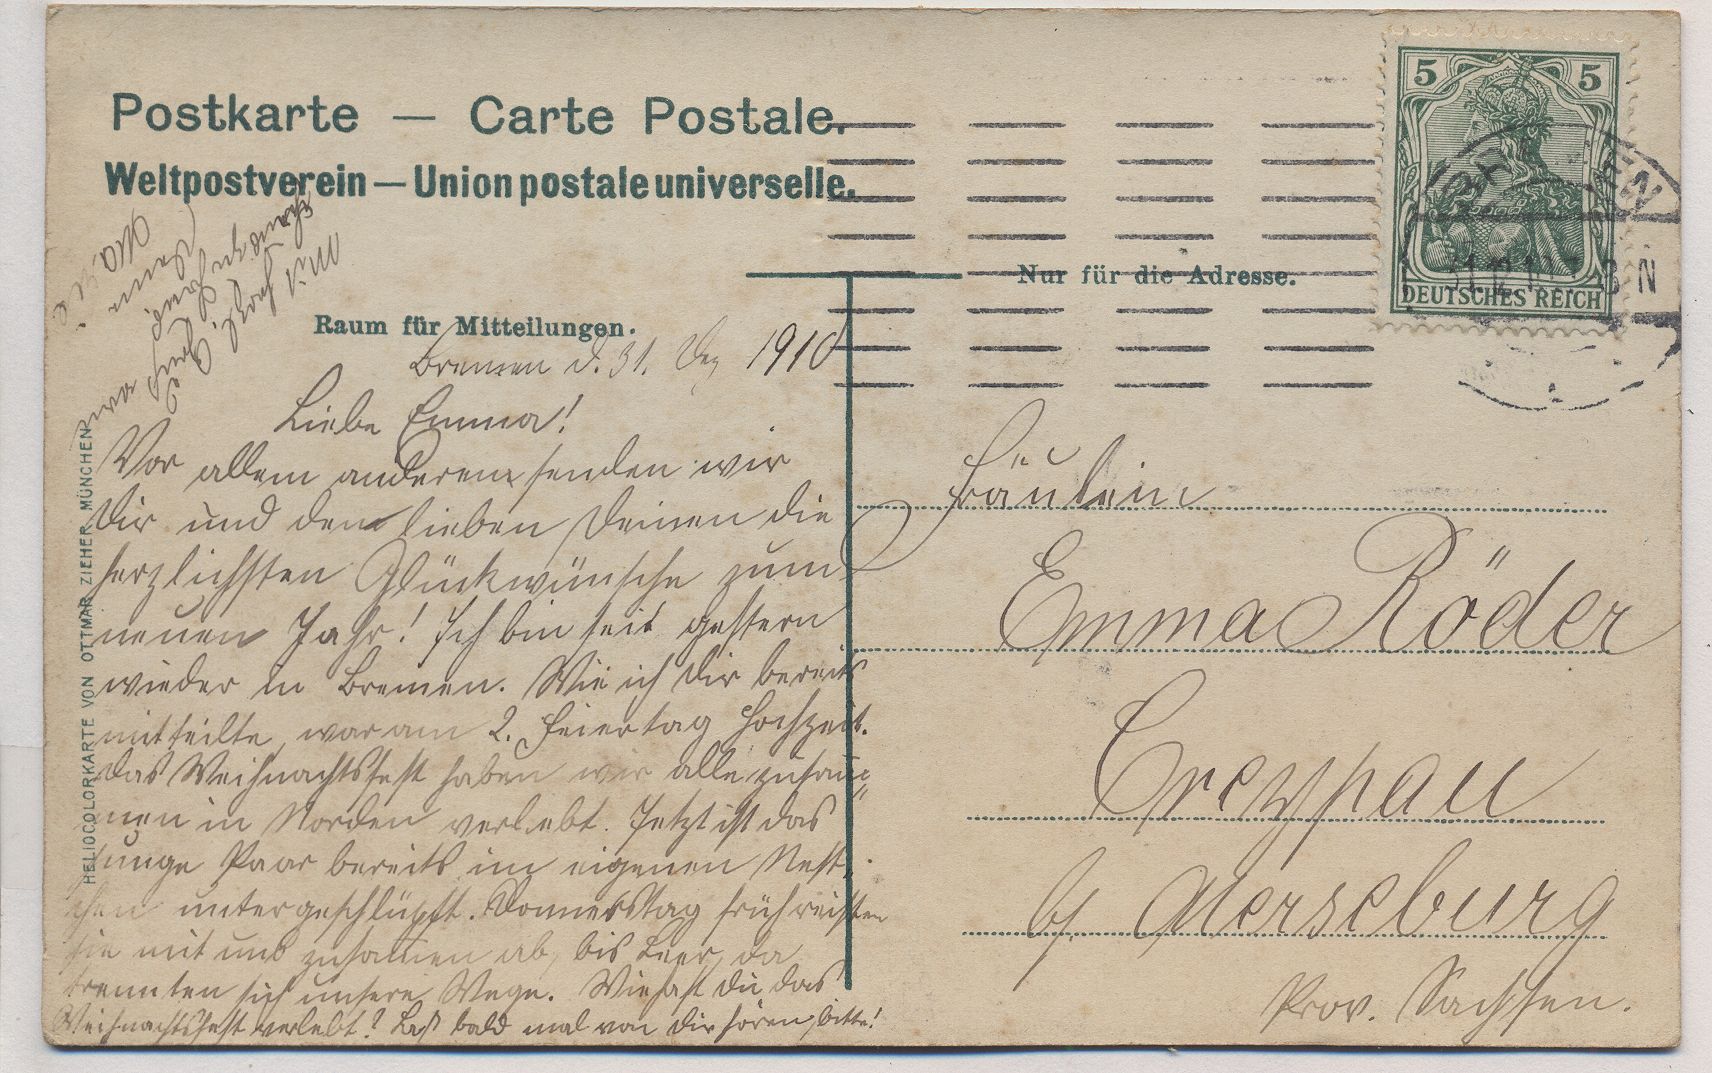 Postkarte — Carte Postale.
Weltpostverein — Union postale universelle.
Nur für die Adresse.
Raum für Mitteilungen.
5 5
DEUTSCHES REICH
BREMEN
Bremen d. 31. Dez 1910
Liebe Emma!
Vor allem anderem senden wir
Dir und den lieben Deinen die
herzlichsten Glückwünsche zum
neuen Jahr! Ich bin seit gestern
wieder in Bremen. Wie ich Dir bereits
mitteilte, war am 2. Feiertag Hochzeit.
Das Weihnachtsfest haben wir alle zusam=
men in Norden verlebt. Jetzt ist das
junge Paar bereits im eigenen Nest-
chen untergeschlüpft. Donnerstag früh reisten
sie mit uns zusammen ab, bis Leer, da
trennten sich unsere Wege. Wie hast Du das
Weihnachtsfest verlebt? Laß bald mal von Dir hören, bitte!
Mit herzl.
Gruß
Deine
Fräulein
Emma Röder
Creypau
b/ Merseburg
Prov. Sachsen.
HELIOCOLORKARTE VON OTTMAR ZIEHER, MÜNCHEN